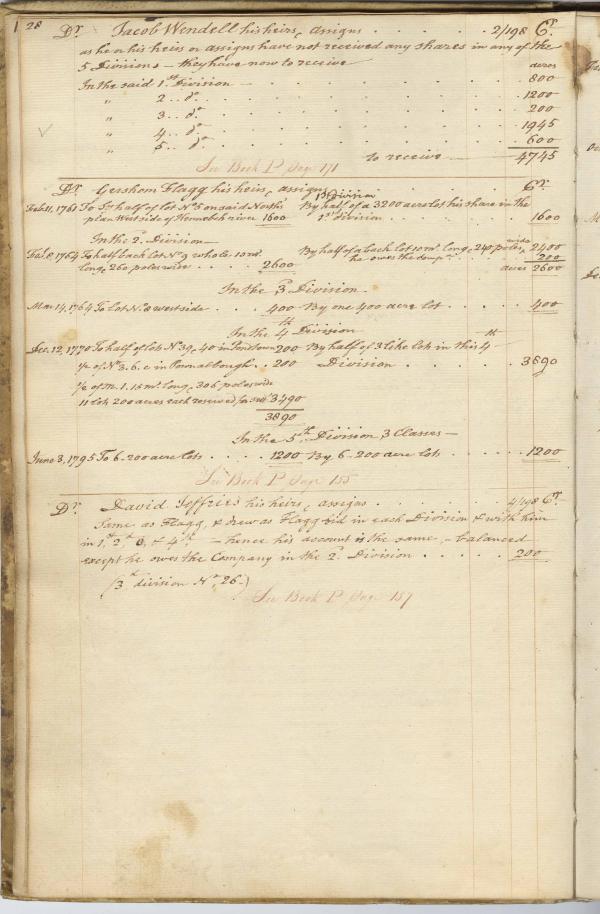 1 28
Dr. Jacob Wendell his heirs, assigns . . . . . 2/198 Cr.
as he or his heirs or assigns have not received any shares in any of the
5 Divisions — they have now to receive acres
In the said 1.st Division — . . . . . . 800
" 2 .. do. . . . . . . 1200
" 3 .. do. . . . . . . 200
" 4 .. do. . . . . . . 1945
" 5 .. do. . . . . . . 600
to receive 4745
See Book P page 171
Dr. Gershom Flagg his heirs, assigns Cr.
1st Division
Feb. 11, 1761 To half of lot No 5 on said North's By half of a 3200 acre lot his share in the
plan West side of Kennebeck river 1600 1st division . . . . . 1600
In the 2d. Division —
Feb. 8, 1764 To half back lot No 9 whole 10 ml. By half of a back lot 10 ml. long, 240 poles wide 2400
long, 260 poles wide . . . . 2600 he owes the comp.y 200
acres 2600
In the 3d Division
Mar. 14, 1764 To lot No. 8 west side . . . . 400 By one 400 acre lot . . . . . 400
In the 4th Division
Dec. 12, 1770 To half of lots No 39, 40 in 200 By half of 3 like lots in this 4th
1/2 of No 3. 6. c in Pownalborough . . 200 Division . . . . . 3890
1/2 of M. 1. 15 ml. long, 306 poles wide
11 lots 200 acres each reserved for 3490
3890
In the 5th Division, 3 Classes —
June 3, 1795 To 6 - 200 acre lots . . . . 1200 By 6 - 200 acre lots . . . . . 1200
See Book P page 155
Dr. David Jeffries his heirs, assigns . . . . . 4/198 Cr.
Same as Flagg, & drew as Flagg did in each Division & with him
in 1st, 2d, 3, & 4th — hence his account is the same, balanced
except he owes the Company in the 2d Division . . . . . 200
(3d division No 26 —)
See Book P page 157